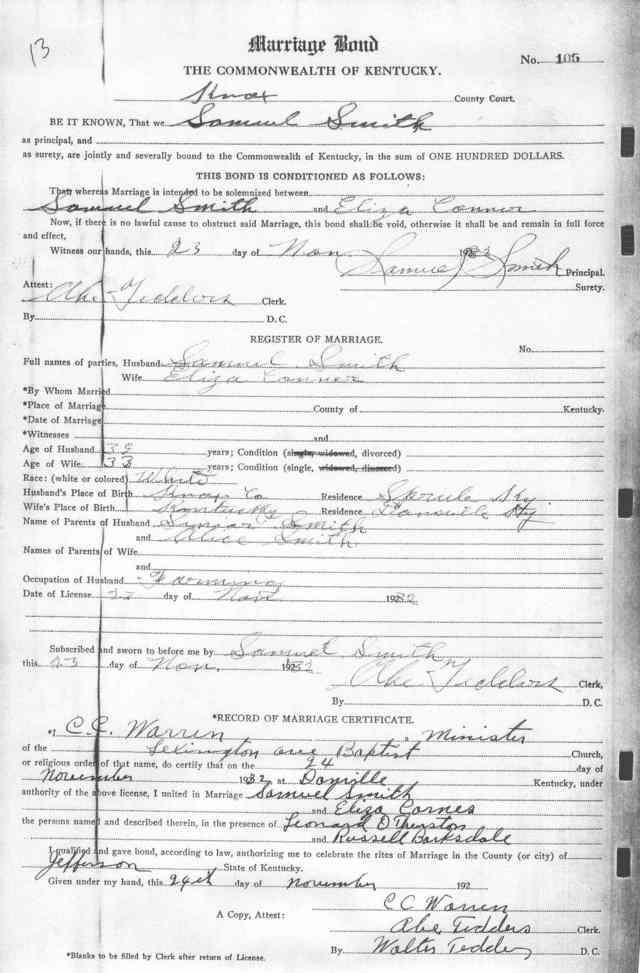 13
Marriage Bond
No. 105
THE COMMONWEALTH OF KENTUCKY.
Knox County Court.
BE IT KNOWN, That we Samuel Smith
as principal, and
as surety, are jointly and severally bound to the Commonwealth of Kentucky, in the sum of ONE HUNDRED DOLLARS.
THIS BOND IS CONDITIONED AS FOLLOWS:
That whereas Marriage is intended to be solemnized between
Samuel Smith and Eliza Conner
Now, if there is no lawful cause to obstruct said Marriage, this bond shall be void, otherwise it shall be and remain in full force
and effect,
Witness our hands, this 23 day of Nov 1932
Samuel Smith Principal.
Surety.
Attest:
Abe Tedders Clerk.
By D. C.
REGISTER OF MARRIAGE.
No.
Full names of parties, Husband Samuel Smith
Wife Eliza Conner
*By Whom Married
*Place of Marriage County of Kentucky.
*Date of Marriage
*Witnesses and
Age of Husband 39 years; Condition (single, widowed, divorced)
Age of Wife 33 years; Condition (single, widowed, divorced)
Race: (white or colored) White
Husband's Place of Birth Knox Co Residence Ky
Wife's Place of Birth Kentucky Residence Danville Ky
Name of Parents of Husband Smith
and Alice Smith
Names of Parents of Wife
and
Occupation of Husband Farming
Date of License 23 day of Nov 1932
Subscribed and sworn to before me by Samuel Smith
this 23 day of Nov. 1932
Abe Tedders Clerk,
By D. C.
*RECORD OF MARRIAGE CERTIFICATE.
*I C.C. Warren a Minister
of the Lexington ave Baptist Church,
or religious order of that name, do certify that on the 24 day of
November 1932 at Danville Kentucky, under
authority of the above license, I united in Marriage Samuel Smith
and Eliza Cornes
the persons named and described therein, in the presence of Leonard O Thurston
and Russell Barksdale
I qualified and gave bond, according to law, authorizing me to celebrate the rites of Marriage in the County (or city) of
Jefferson State of Kentucky.
Given under my hand, this 24th day of November 192
C C Warren
A Copy, Attest: Abe Tedders Clerk.
By Walter Tedders D. C.
*Blanks to be filled by Clerk after return of License.